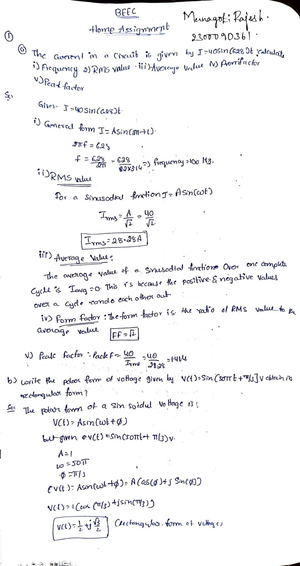 BEEC
Home Assignment
Munagoti Rajesh.
2300090361
①
a) The current in a circuit is given by I=40sin(628)t calculate
i) Frequency 2) RMS value iii) Average value iv) Form factor
v) Peak factor
Given I=40sin(628)t
i) General form I=Asin(2π+t).
2πf=628
f = 628/2π = 628/2×3.14 => frequency=100 Hz.
ii) RMS value
For a sinusodial function I=Asin(ωt)
Irms = A/√2 = 40/√2
Irms=28.28A
iii) Average value:
The average value of a sinusodial function over one complete
cycle is Iavg=0 This is because the positive & negative values
over a cycle cancle each other out
iv) Form factor: The form factor is the ratio of RMS value to the
average value FF=√2
v) Peak factor: Peak F = 40/Irms = 40/28.28 = 1.414
b) write the polar form of voltage given by V(t)=Sin[50πt+π/3]V obtain its
rectangular form?
The polar form of a sin soidal voltage is:
V(t)=Asin(ωt+ϕ)
but given ev(t)=sin(50πt+π/3)v.
A=1
ω=50π
ϕ=π/3
ev(t)=Asin(ωt+ϕ)=A(cos(ϕ)+j sin(ϕ))
V(t)=1(cos(π/3)+jsin(π/3))
V(t)=1/2+j√3/2 (Rectangular form of voltage)